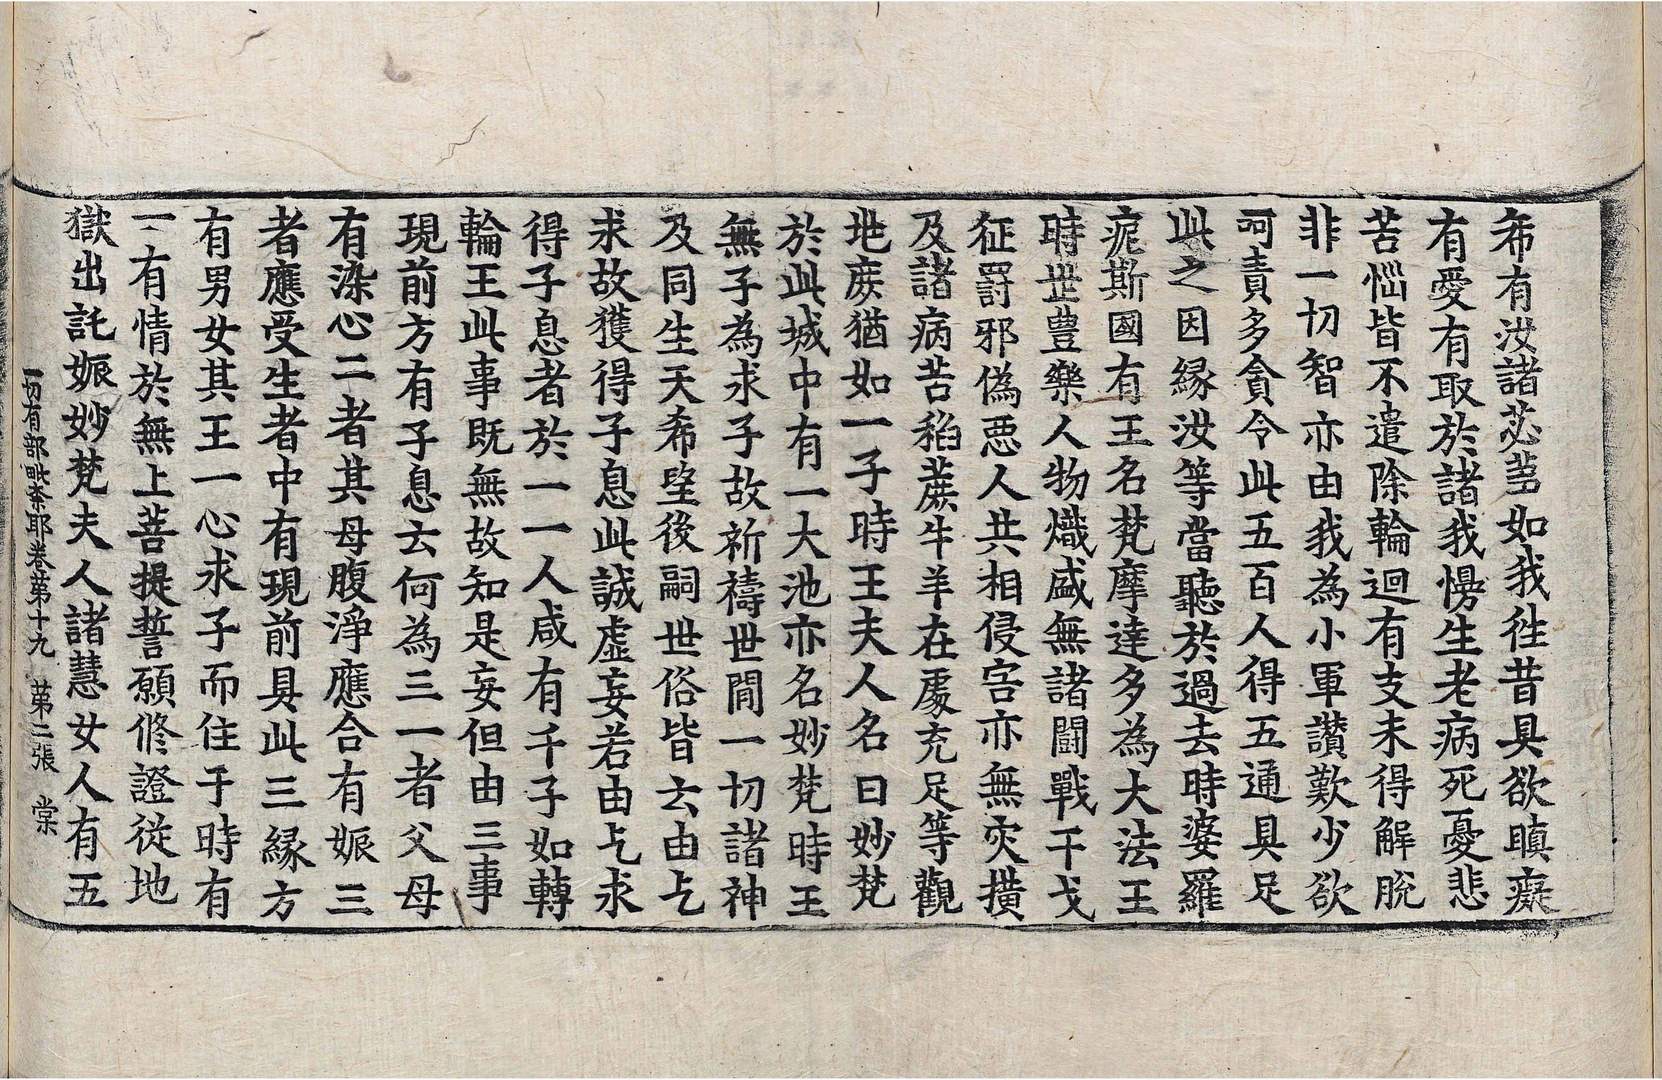 希有汝諸苾蒭如我徃昔具欲瞋癡
有愛有取於諸我慢生老病死憂悲
苦惱皆不遣除輪迴有支未得解脫
非一切智亦由我為小軍讃歎少欲
呵責多貪令此五百人得五通具足
此之因緣汝等當聽於過去時婆羅
痆斯國有王名梵摩達多為大法王
時世豊樂人物熾盛無諸鬪戰干戈
征罸邪偽惡人共相侵害亦無灾撗
及諸病苦稻蔗牛羊在處充足等觀
地蔗猶如一子時王夫人名曰妙梵
於此城中有一大池亦名妙梵時王
無子為求子故祈禱世間一切諸神
及同生天希望後嗣世俗皆云由乞
求故獲得子息此誠虛妄若由乞求
得子息者於一一人咸有千子如轉
輪王此事既無故知是妄但由三事
現前方有子息云何為三一者父母
有染心二者其母腹淨應合有娠三
者應受生者中有現前具此三緣方
有男女其王一心求子而住于時有
一有情於無上菩提誓願修證從地
獄出託娠妙梵夫人諸慧女人有五
一切有部毗奈耶卷第十九 第二張 棠